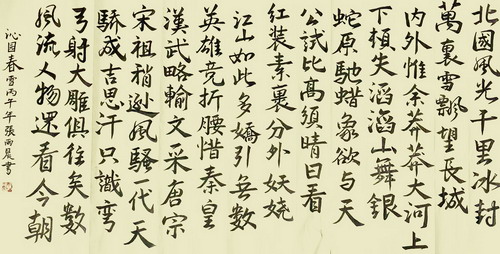 北國風光千里冰封
萬裏雪飄望長城
内外惟余莽莽大河上
下頓失滔滔山舞銀
蛇原馳蜡象欲与天
公試比高須晴日看
紅装素裹分外妖娆
江山如此多嬌引無數
英雄竞折腰惜秦皇
漢武略輸文采唐宗
宋祖稍逊風騷一代天
驕成吉思汗只識彎
弓射大雕俱往矣數
風流人物還看今朝
沁园春雪丙午年張雨晨書